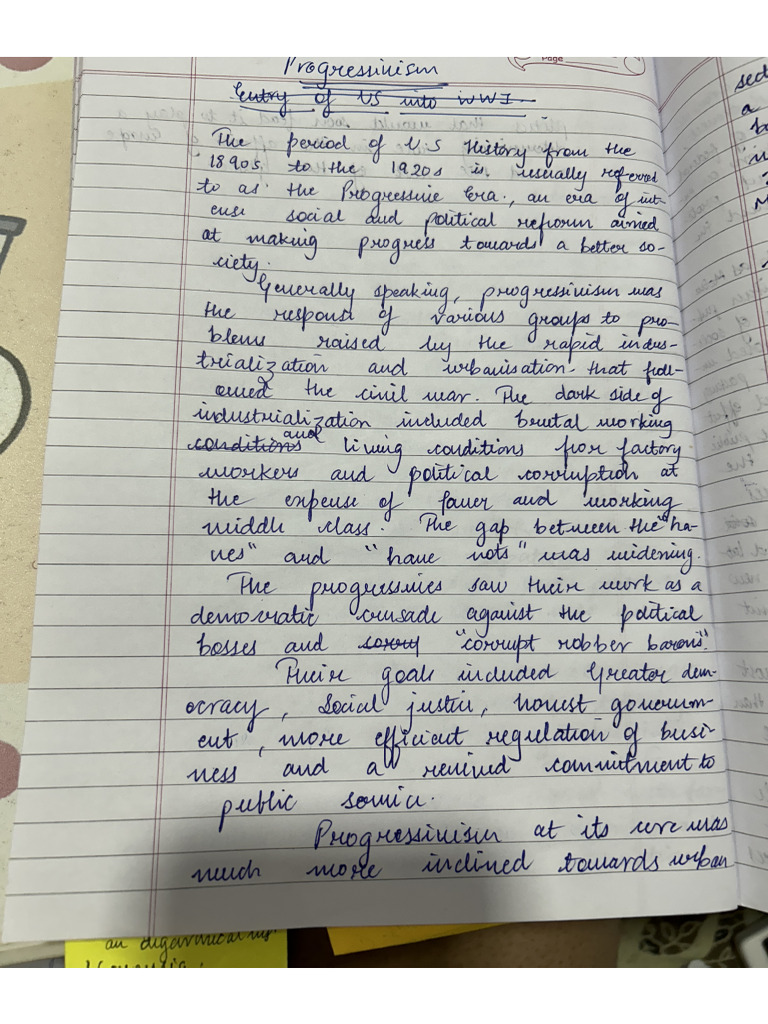 Page
Progressivism
Entry of US into WWI
The period of U.S History from the
1890s to the 1920s is usually referred
to as the Progressive Era, an era of int-
ense social and political reform aimed
at making progress towards a better so-
ciety.
Generally speaking, progressivism was
the response of various groups to pro-
blems raised by the rapid indus-
trialization and urbanisation that foll-
owed the civil war. The dark side of
industrialization included brutal working
conditions and living conditions for factory
workers and political corruption at
the expense of fower and working
middle class. The gap between the "ha-
ves" and "have nots" was widening.
The progressives saw their work as a
democratic crusade against the political
bosses and "corrupt robber barons".
Their goals included Greater dem-
ocracy, Social justice, honest governm-
ent, more efficient regulation of busi-
ness and a revived commitment to
public service.
Progressivism at its core was
much more inclined towards urban
an